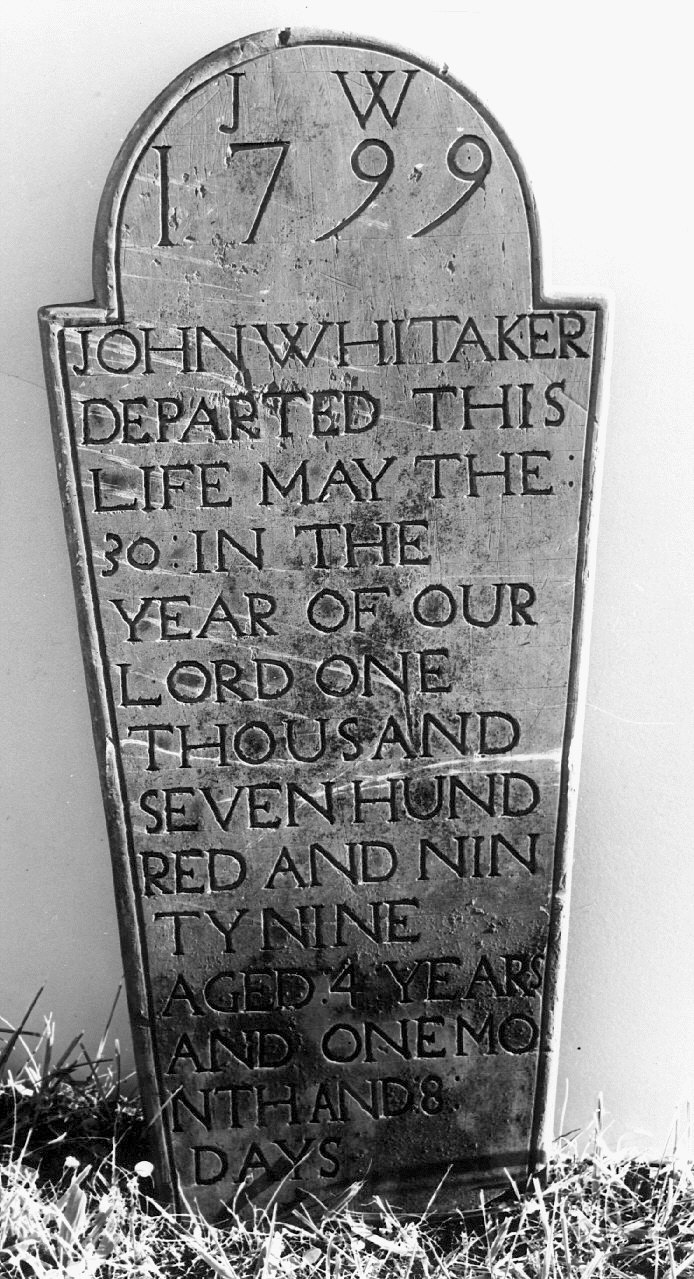 J W
1799
JOHN WHITAKER
DEPARTED THIS
LIFE MAY THE:
30: IN THE
YEAR OF OUR
LORD ONE
THOUSAND
SEVEN HUND
RED AND NIN
TY NINE
AGED. 4 YEARS
AND ONE MO
NTH AND 8:
DAYS